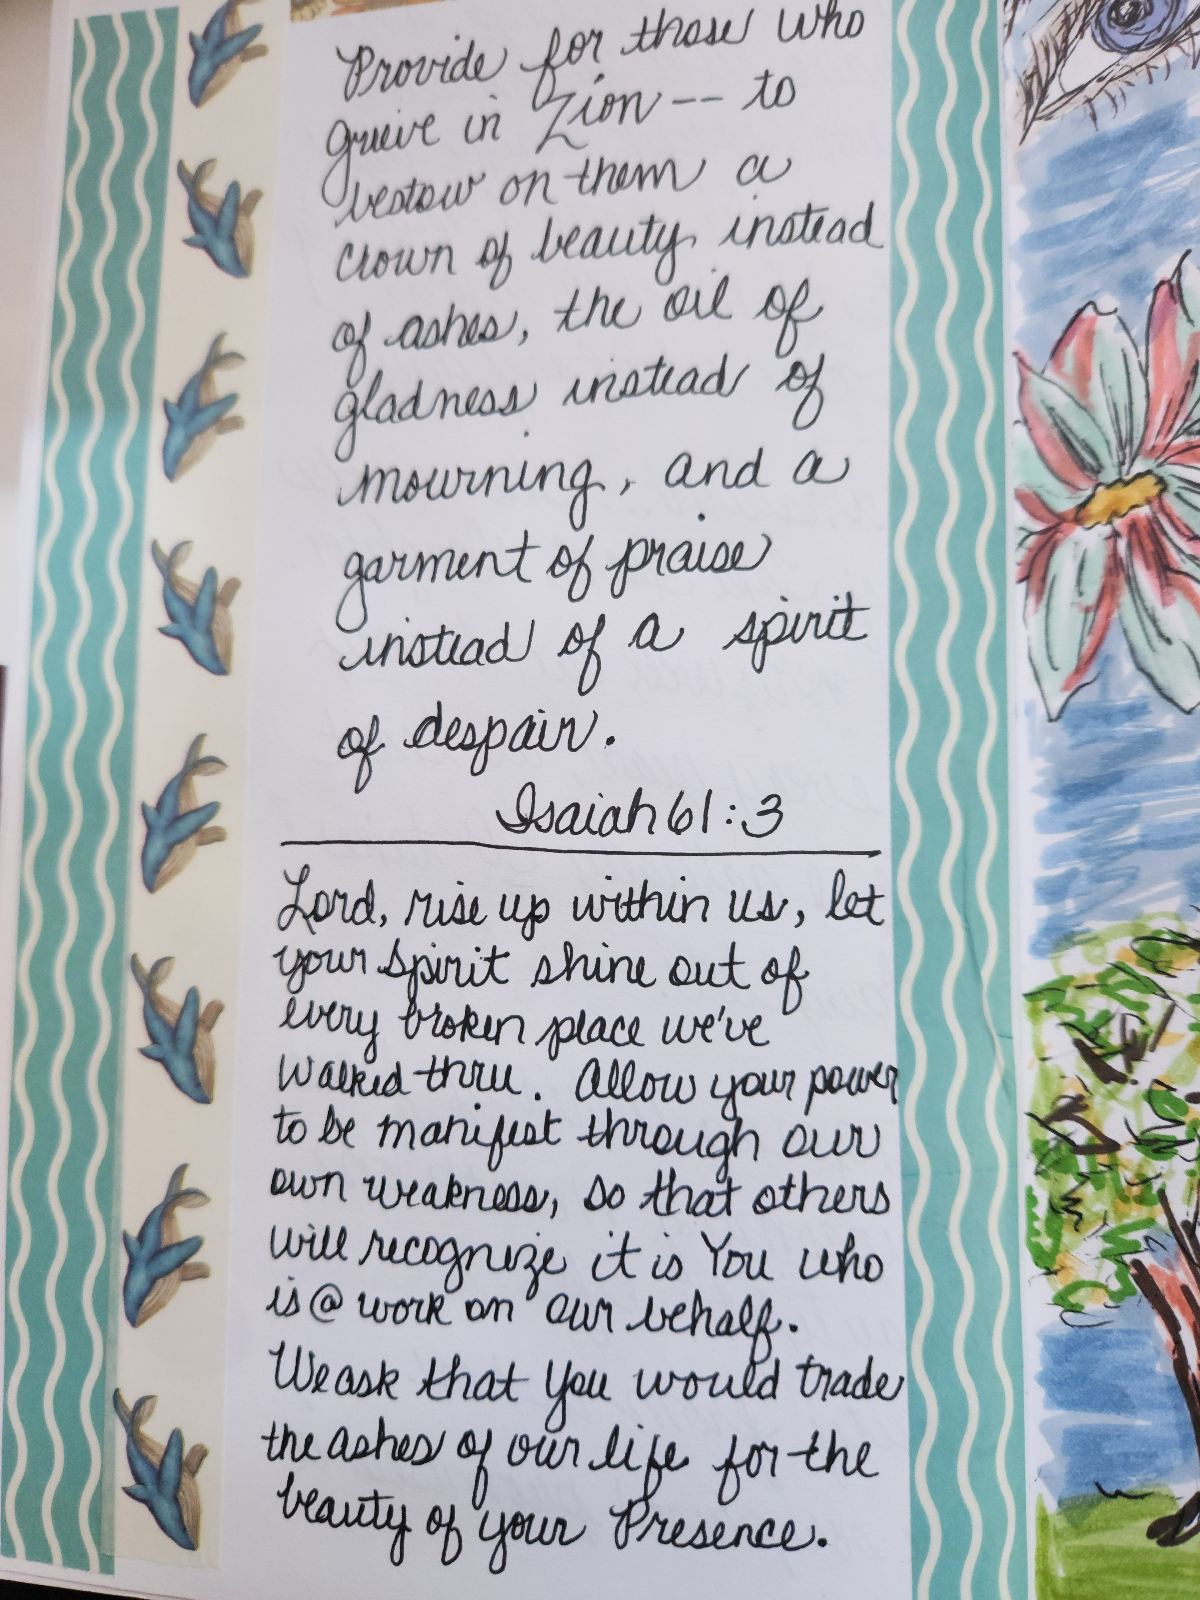 Provide for those who
grieve in Zion -- to
bestow on them a
crown of beauty instead
of ashes, the oil of
gladness instead of
mourning, and a
garment of praise
instead of a spirit
of despair.
Isaiah 61:3
Lord, rise up within us, let
your spirit shine out of
every broken place we've
walked thru. Allow your power
to be manifest through our
own weakness, so that others
will recognize it is You who
is @ work on our behalf.
We ask that You would trade
the ashes of our life for the
beauty of your Presence.